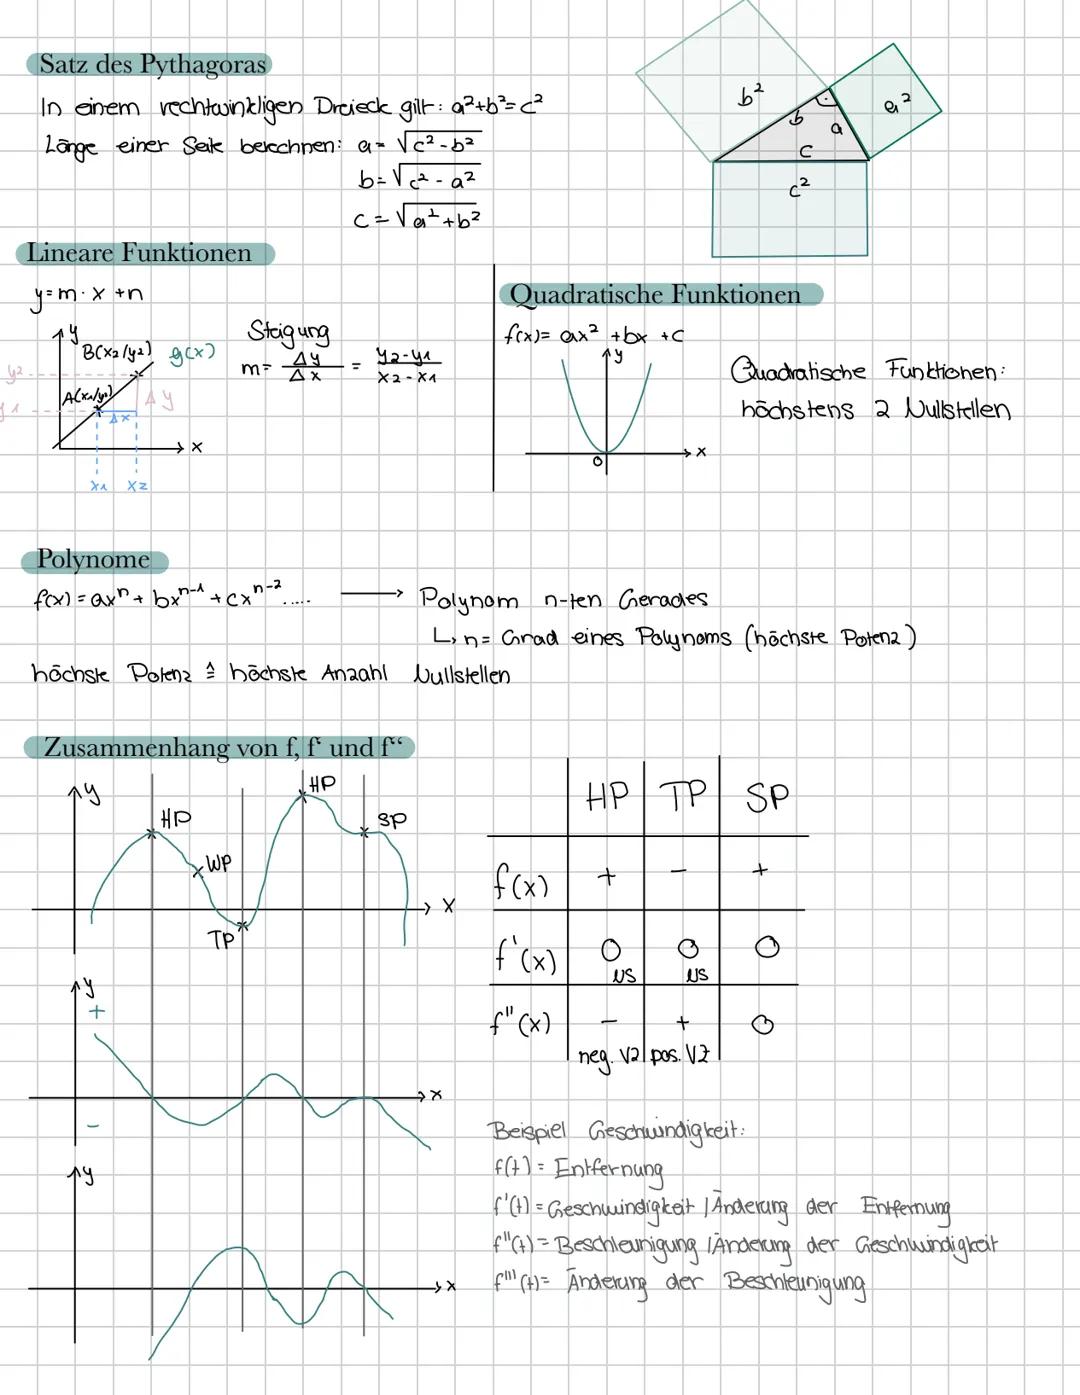 Satz des Pythagoras
In einem rechtwinkligen Dreieck gilt: a²+b²=c²
Länge einer Seite berechnen: a= √c²-b²
b=√c²-a²
c=√a²+b²
b²
a²
b
a
c
c²
Lineare Funktionen
y=m·x+n
y
B(x2/y2)
g(x)
y2
A(x1/y1)
Δy
Δx
x
x1 x2
Steigung
m= Δy/Δx = y2-y1/x2-x1
Quadratische Funktionen
f(x)= ax²+bx+c
y
x
0
Quadratische Funktionen:
höchstens 2 Nullstellen
Polynome
f(x)=axⁿ+bxⁿ⁻¹+cxⁿ⁻²..... → Polynom n-ten Gerades
↳ n= Grad eines Polynoms (höchste Potenz)
höchste Potenz ≙ höchste Anzahl Nullstellen
Zusammenhang von f, f‘ und f“
y
HP
HP
SP
WP
TP
x
y
+
-
x
y
x
HP TP SP
f(x) + - +
f'(x) 0 0 0
NS NS
f''(x) - + 0
neg. VZ pos. VZ
Beispiel Geschwindigkeit:
f(t)= Entfernung
f'(t)=Geschwindigkeit/Änderung der Entfernung
f''(t)=Beschleunigung/Änderung der Geschwindigkeit
f'''(t)= Änderung der Beschleunigung